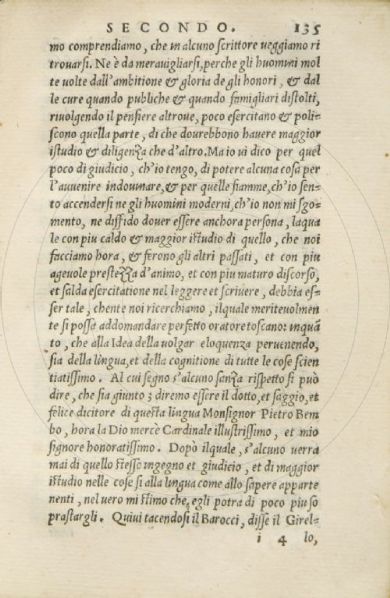 SECONDO. 135
mo comprendiamo, che in alcuno scrittore ueggiamo ri
trouarsi. Ne è da merauigliarsi, perche gli huomini mol
te uolte dall'ambitione & gloria de gli honori, & dal
le cure quando publiche & quando famigliari distolti,
riuolgendo il pensiere altroue, poco esercitano & poli-
scono quella parte, di che dourebbono hauere maggior
istudio & diligenza che d'altro. Ma io ui dico per quel
poco di giudicio, ch'io tengo, di potere alcuna cosa per
l'auuenire indouinare, & per quelle fiamme, ch'io sen-
to accendersi ne gli huomini moderni, ch'io non mi sgo-
mento, ne diffido douer essere anchora persona, laqua
le con piu caldo & maggior istudio di quello, che noi
facciamo hora, & ferono gli altri passati, et con piu
ageuole prestezza d'animo, et con piu maturo discorso,
et salda esercitatione nel leggere et scriuere, debbia es-
ser tale, chente noi ricerchiamo, ilquale meriteuolmen
te si possa addomandare perfetto oratore toscano: inquã
to, che alla Idea della uolgar eloquenza peruenendo,
sia della lingua, et della cognitione di tutte le cose scien
tiatissimo. Al cui segno s'alcuno sanza rispetto si può
dire, che sia giunto; diremo essere il dotto, et saggio, et
felice dicitore di questa lingua Monsignor Pietro Bem
bo, hora la Dio mercè Cardinale illustrissimo, et mio
signore honoratissimo. Dopò ilquale, s'alcuno uerra
mai di quello stesso ingegno et giudicio, et di maggior
istudio nelle cose si alla lingua come allo sapere apparte
nenti, nel uero mi stimo che egli potra di poco piu so
prastargli. Quiui tacendosi il Barocci, disse il Girel-
i 4 lo,